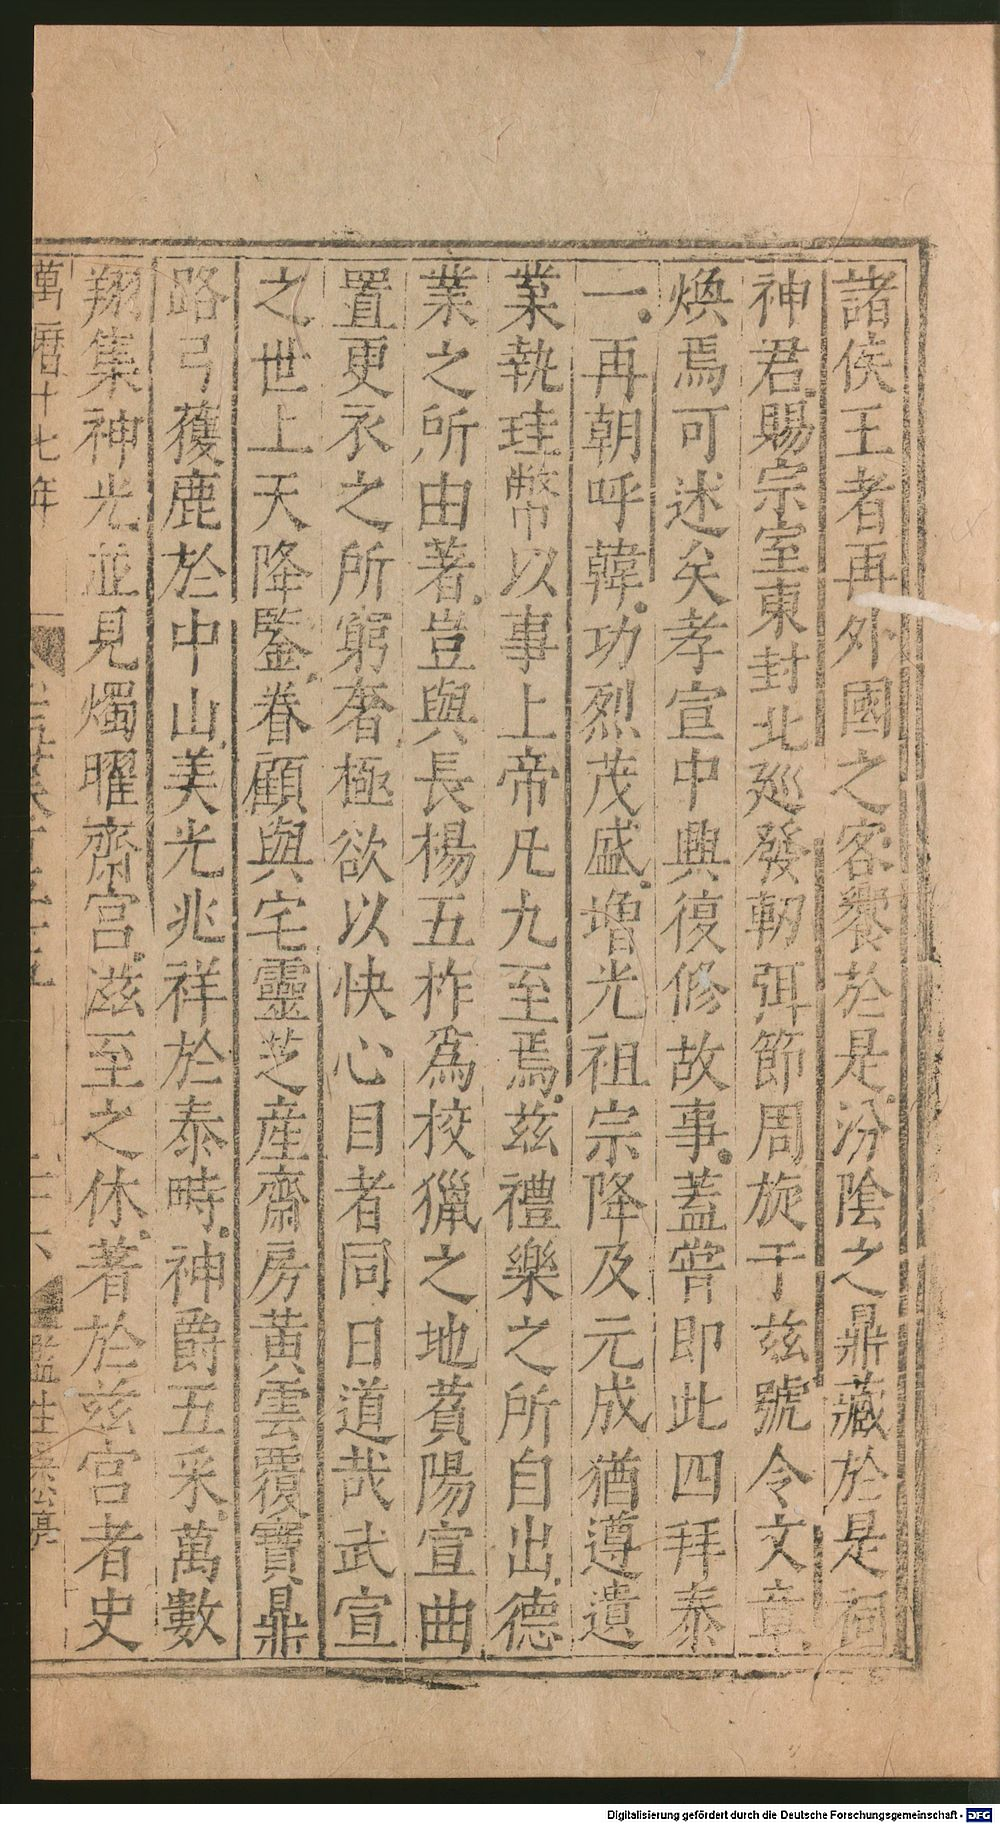 諸侯王者再外國之客饗於是汾陰之鼎藏於是祠
神君賜宗室東封北廵發軔弭節周旋于兹號令文章
煥焉可述矣孝宣中興復修故事蓋嘗即此四拜泰
一再朝呼韓功烈茂盛增光祖宗降及元成猶遵遺
業執珪幣以事上帝凡九至焉兹禮樂之所自出德
業之所由著豈與長楊五柞爲校獵之地萯陽宣曲
置更衣之所窮奢極欲以快心目者同日道哉武宣
之世上天降鑒眷顧與宅靈芝產齋房黃雲覆寶鼎
路弓獲鹿於中山美光兆祥於泰畤神爵五采萬數
翔集神光並見燭曜齋宮滋至之休著於兹宮者史
萬曆十七年
監生
Digitalisierung gefördert durch die Deutsche Forschungsgemeinschaft - DFG